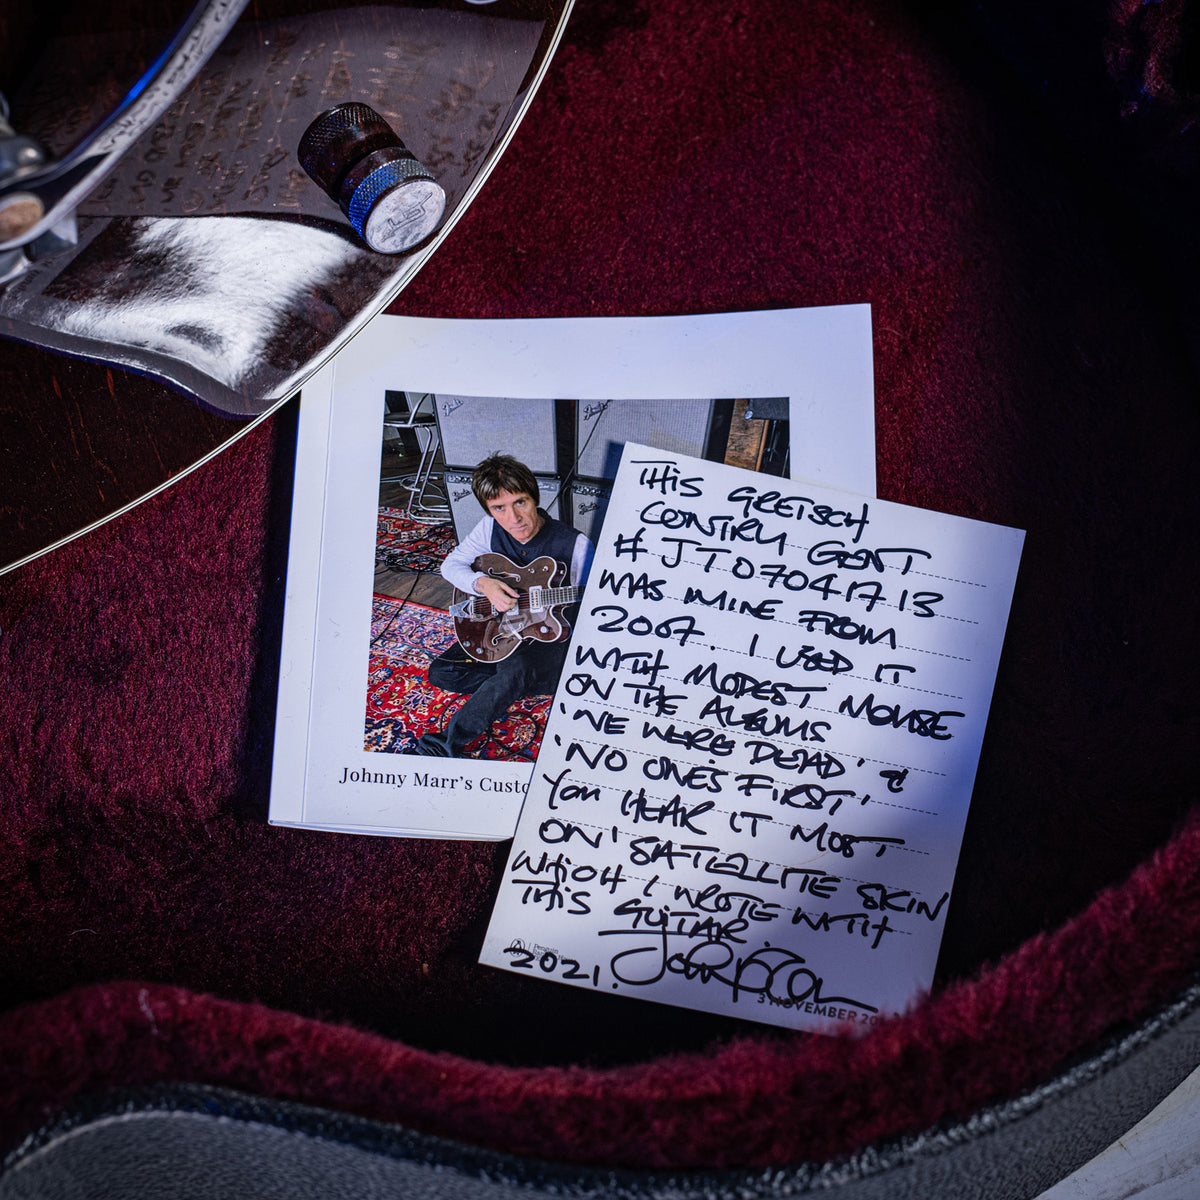 Fender
Fender
Johnny Marr's Custo
THIS GRETSCH
CONTRY GENT
# JT07041713
WAS MINE FROM
2007. I USED IT
WITH MODEST MOUSE
ON THE ALBUMS
'WE WERE DEAD' &
'NO ONES FIRST'
YOU HEAR IT MOST
ON 'SATELLITE SKIN
WHICH I WROTE WITH
THIS GUITAR.
2021.
Penguin
3 NOVEMBER 20